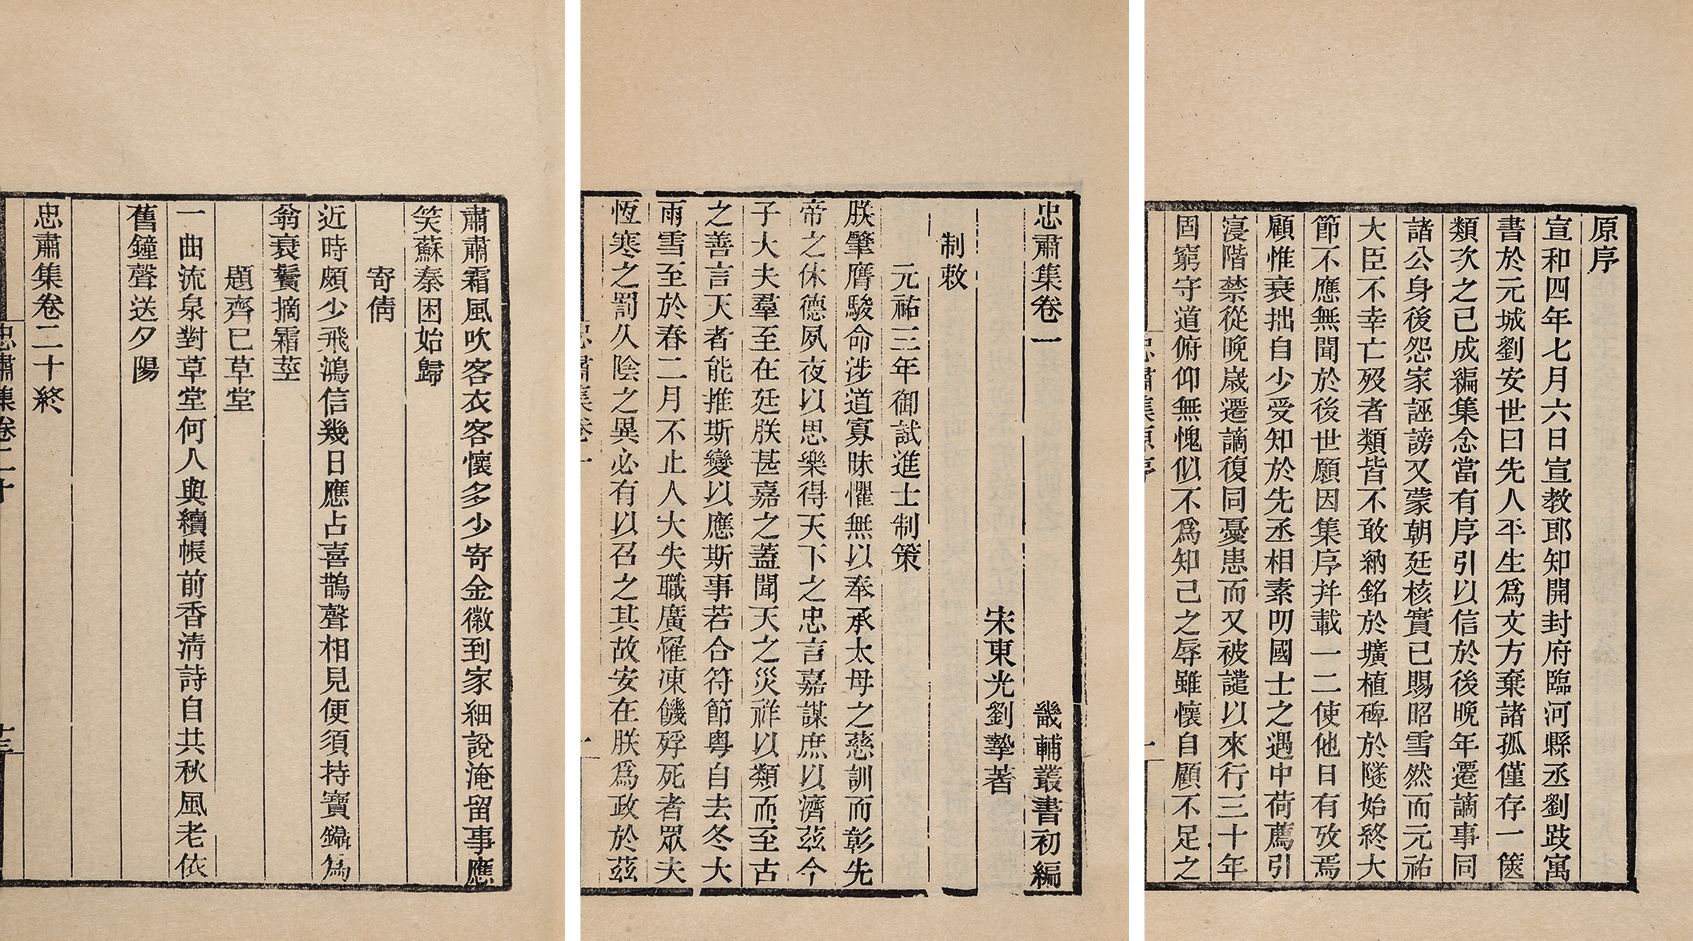 原序
宣和四年七月六日宣教郎知開封府臨河縣丞劉跂寓
書於元城劉安世曰先人平生爲文方棄諸孤僅存一篋
類次之已成編集念當有序引以信於後晚年遷謫事同
諸公身後怨家誣謗又蒙朝廷核實已賜昭雪然而元祐
大臣不幸亡歿者類皆不敢納銘於壙植碑於隧始終大
節不應無聞於後世願因集序幷載一二使他日有攷焉
顧惟衰拙自少受知於先丞相素叨國士之遇中荷薦引
寖階禁從晚歲遷謫復同憂患而又被譴以來行三十年
固窮守道俯仰無愧似不爲知己之辱雖懷自顧不足之
忠肅集原序
一
忠肅集卷一
畿輔叢書初編
宋東光劉摯著
制敕
元祐三年御試進士制策
朕肇膺駿命涉道寡昧懼無以奉承太母之慈訓而彰先
帝之休德夙夜以思樂得天下之忠言嘉謀庶以濟茲今
子大夫羣至在廷朕甚嘉之蓋聞天之災祥以類而至古
之善言天者能推斯變以應斯事若合符節粤自去冬大
雨雪至於春二月不止人大失職廣罹凍饑殍死者眾夫
恆寒之罰久陰之異必有以召之其故安在朕爲政於茲
忠肅集卷一
一
肅肅霜風吹客衣客懷多少寄金徽到家細說淹留事應
笑蘇秦困始歸
寄倩
近時頗少飛鴻信幾日應占喜鵲聲相見便須持寶鑷爲
翁衰鬢摘霜莖
題齊已草堂
一曲流泉對草堂何人與續帳前香清詩自共秋風老依
舊鐘聲送夕陽
忠肅集卷二十終
忠肅集卷二十